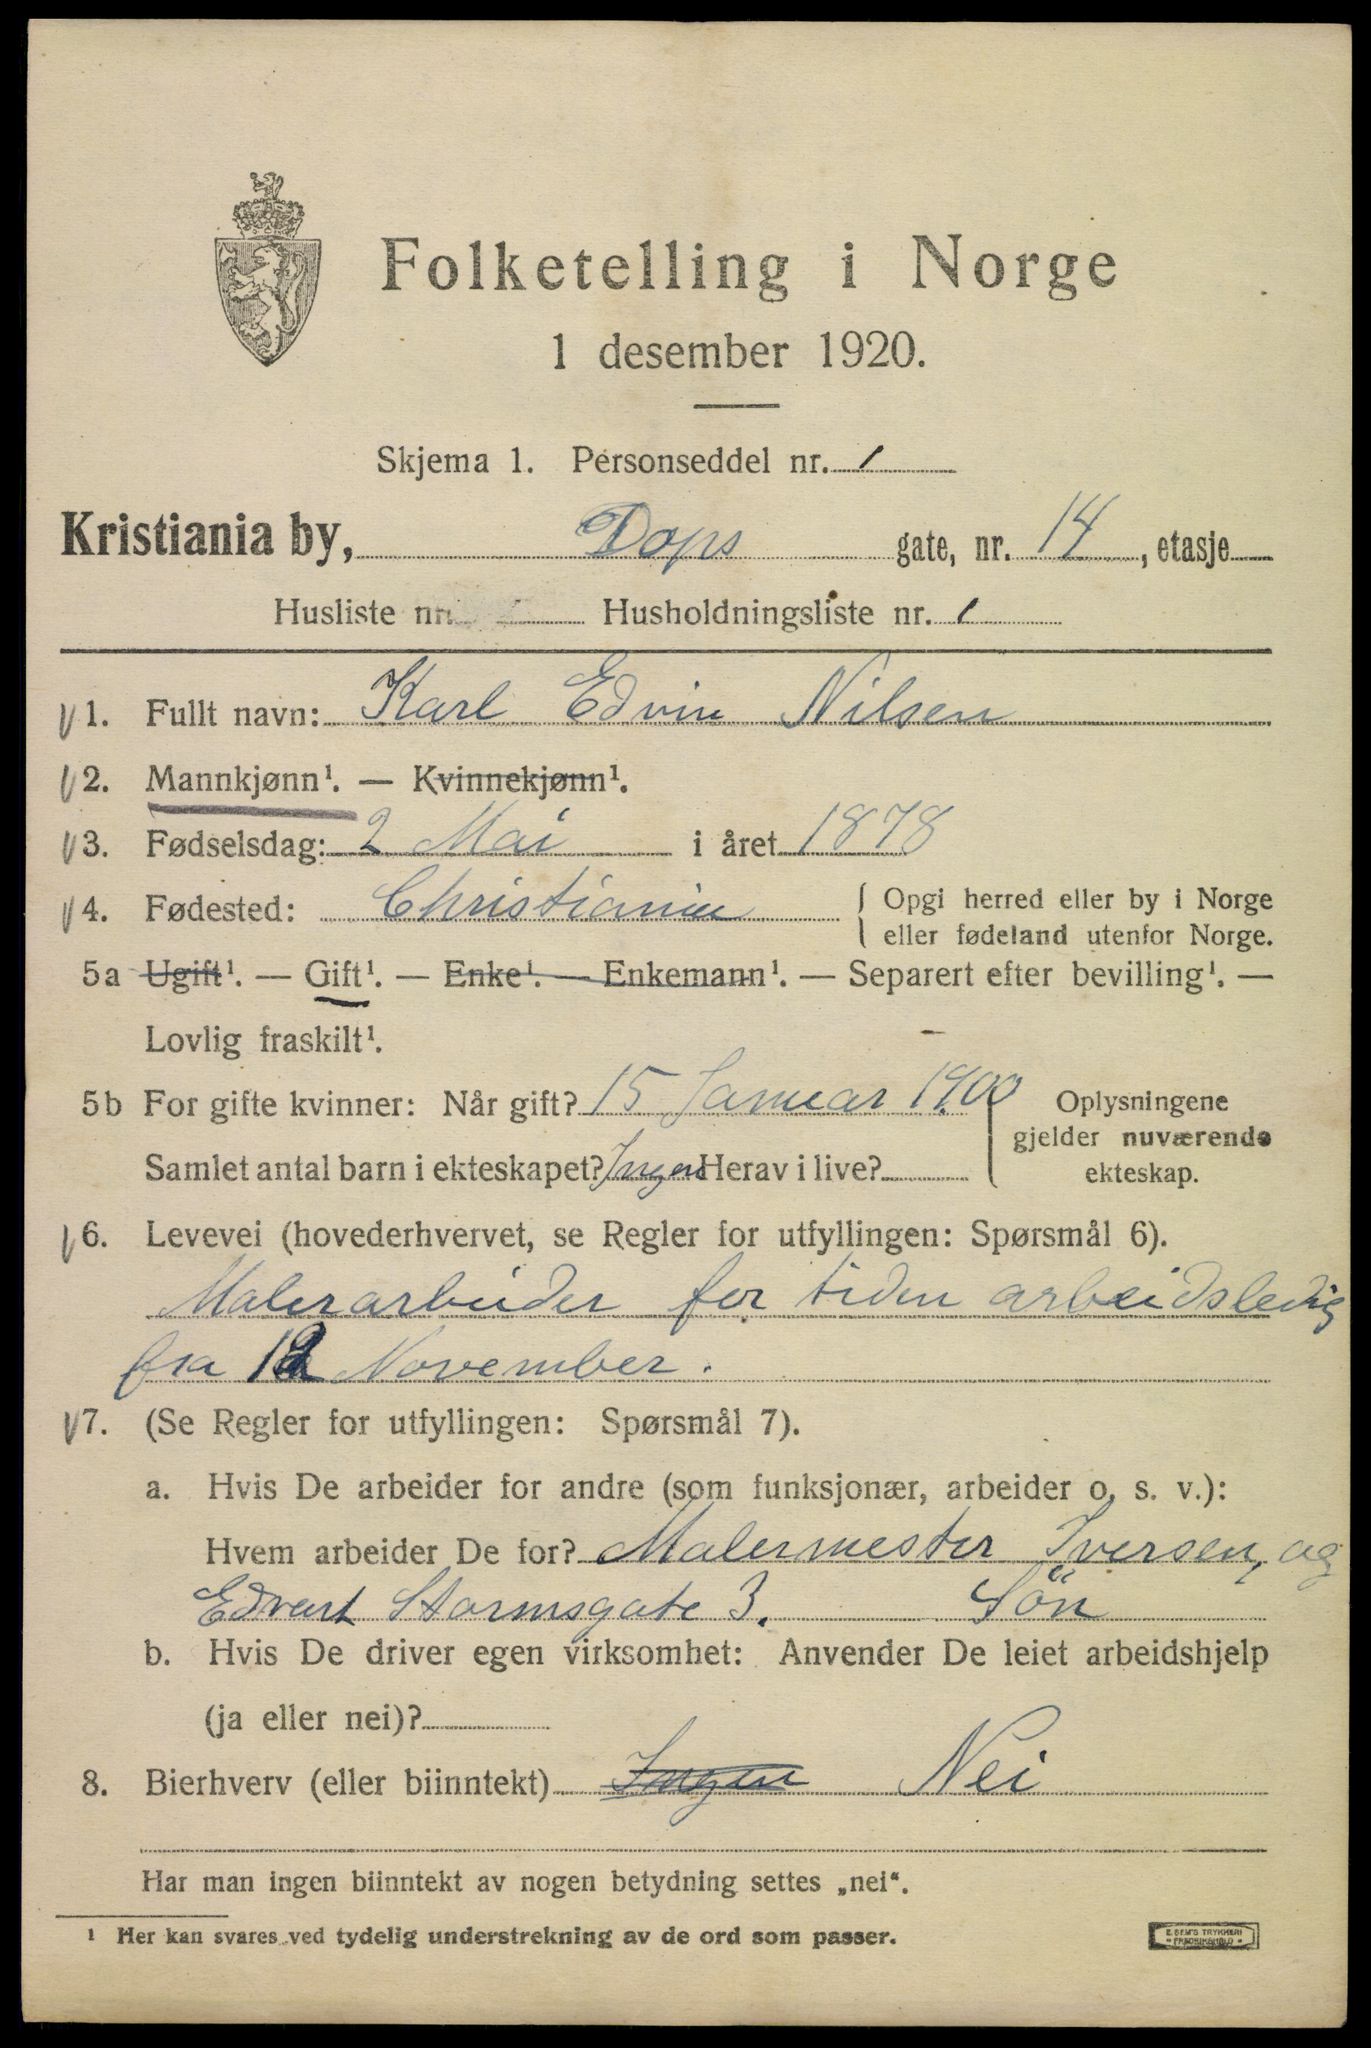 Folketelling i Norge
1 desember 1920.
Skjema 1. Personseddel nr. 1
Kristiania by, Dops gate, nr. 14, etasje
Husliste nr. Husholdningsliste nr. 1
1. Fullt navn: Karl Edvin Nilsen
2. Mannkjønn¹. — Kvinnekjønn¹.
3. Fødselsdag: 2 Mai i året 1878
4. Fødested: Christiania { Opgi herred eller by i Norge
eller fødeland utenfor Norge.
5a Ugift¹. — Gift¹. — Enke¹. — Enkemann¹. — Separert efter bevilling¹. —
Lovlig fraskilt¹.
5b For gifte kvinner: Når gift? 15 Januar 1900 Oplysningene
gjelder nuværende
Samlet antal barn i ekteskapet? Ingen Herav i live? ekteskap.
6. Levevei (hovederhvervet, se Regler for utfyllingen: Spørsmål 6).
Malerarbeider for tiden arbeidsledig
fra 12 November.
7. (Se Regler for utfyllingen: Spørsmål 7).
a. Hvis De arbeider for andre (som funksjonær, arbeider o. s. v.):
Hvem arbeider De for? Malermester Iversen, og
Edvart Stormsgate 3. Sön
b. Hvis De driver egen virksomhet: Anvender De leiet arbeidshjelp
(ja eller nei)?
8. Bierhverv (eller biinntekt) Ingen Nei
Har man ingen biinntekt av nogen betydning settes „nei“.
¹ Her kan svares ved tydelig understrekning av de ord som passer.
E. SEM'S TRYKKERI
FREDRIKSHALD